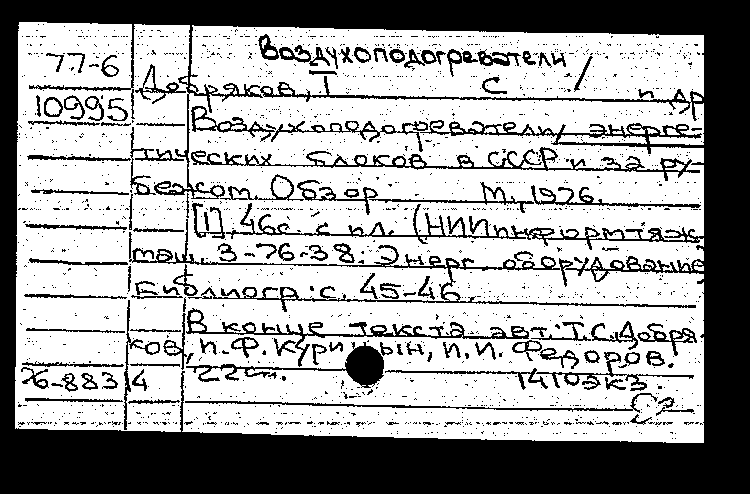 Воздухоподогреватели /
77-6
Добряков, Т С и др
10995
Воздухоподогреватели энерге-
тических блоков в СССР и за ру-
бежом. Обзор М., 1976.
[1], 46с. с ил. (НИИинформтяж-
маш. 3-76-38. Энерг. оборудование
Библиогр.: с. 45-46.
В конце текста авт.: Т.С. Добря-
ков, П.Ф. Курицын, П.И. Федоров.
76-8834 22см. 1410экз.